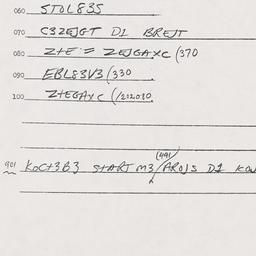 060 STOL835
070 C3ZEJGT D1 BREJT
080 Z+E = ZEJGAXC (370
090 EBL83V3 (330
100 Z+EGAYC (
901 KOC+3B3 START M3 (491) AROJS D1